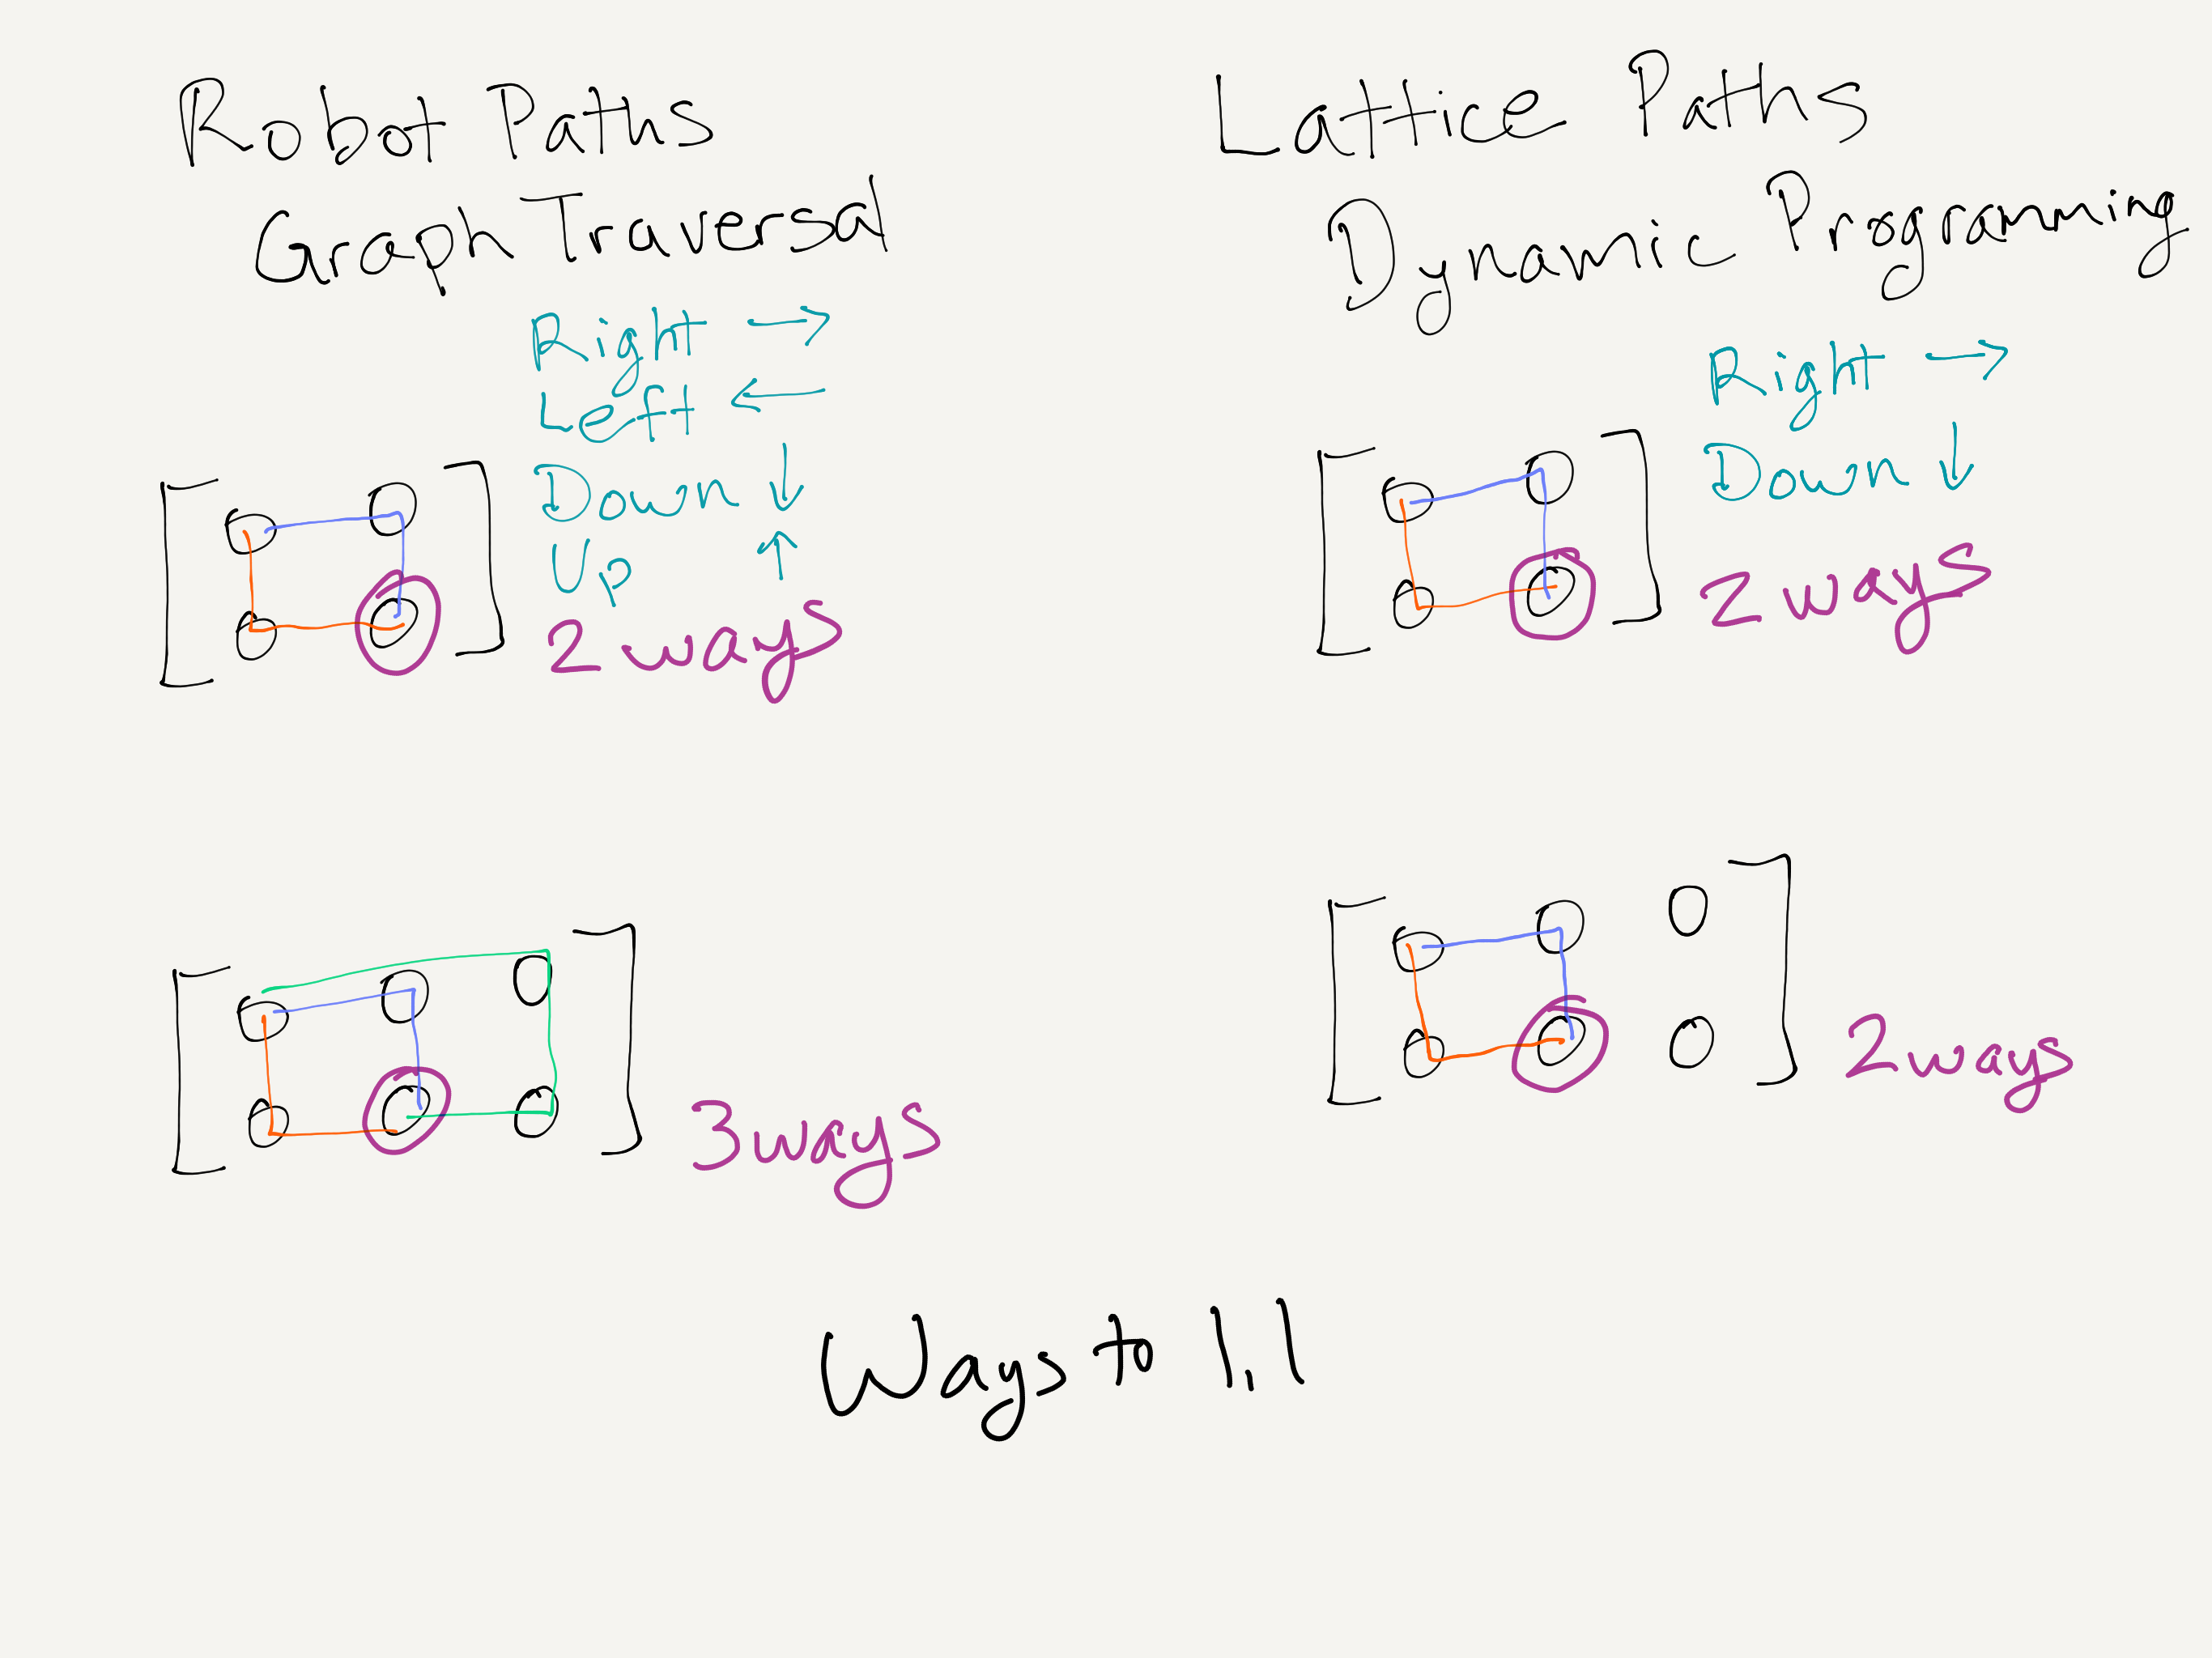 Robot Paths
Graph Traversal
Right →
Left ←
Down ↓
Up ↑
2 ways
3 ways
Lattice Paths
Dynamic Programming
Right →
Down ↓
2 ways
2 ways
Ways to 1,1